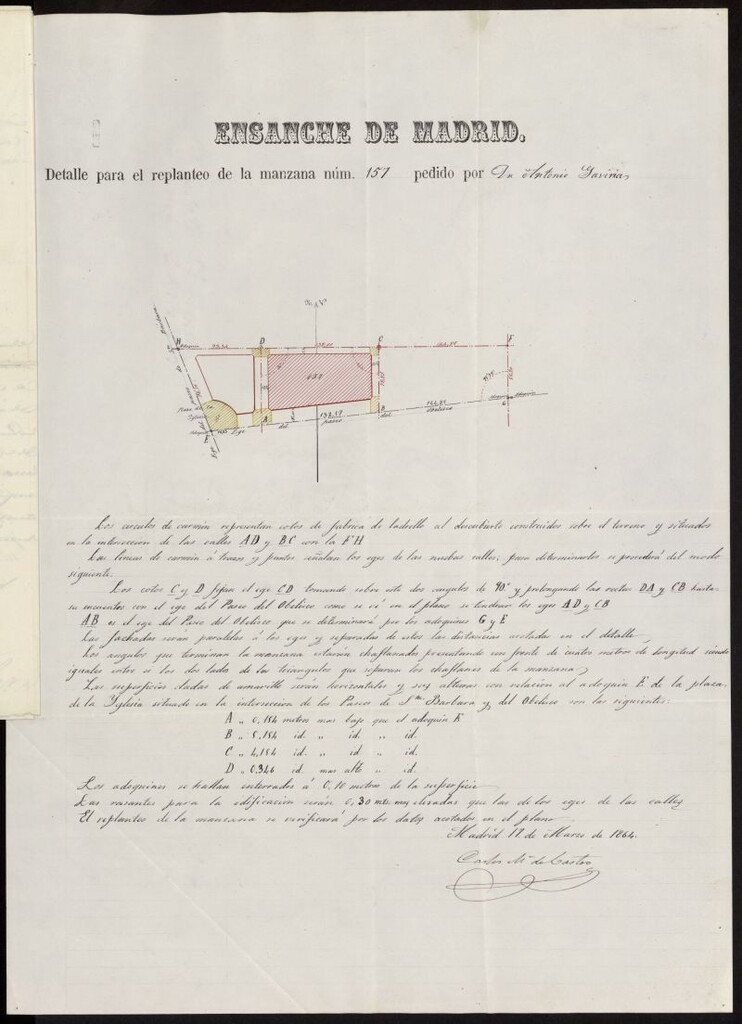 ENSANCHE DE MADRID.
Detalle para el replanteo de la manzana núm. 157 pedido por Dn Antonio Gaviria
N.
H
D
C
F
157
A
B
G
E
Plaza de la
Iglesia
138,57
paseo
del
Obelisco
Los circulos de carmin representan cotos de fabrica de ladrillo al descubierto construidos sobre el terreno y situados
en la interseccion de las calles AD y BC con la FH
Las lineas de carmin á trazos y puntos señalan los eges de las nuebas calles; para determinarlos se procederá del modo
siguiente.
Los cotos C y D fijan el ege CD tomando sobre este dos angulos de 90.° y prolongando las rectas DA y CB hasta
su encuentro con el ege del Paseo del Obelisco como se vé en el plano se tendran los eges AD y CB
AB es el ege del Paseo del Obelisco que se determinará por los adoquines G y E
Las fachadas serán paralelas á los eges y separadas de estos las distancias acotadas en el detalle
Los angulos que terminan la manzana estarán chaflanados presentando un frente de cuatro metros de longitud siendo
iguales entre si los dos lados de los triangulos que separan los chaflanes de la manzana
Las superficies dadas de amarillo serán horizontales y sus alturas con relacion al adoquin E de la plaza
de la Yglesia situado en la interseccion de los Paseos de Sta Barbara y del Obelisco son las siguientes:
A „ 0,184 metros mas bajo que el adoquin E
B „ 5,184 id. „ id. „ id.
C „ 4,184 id „ id „ id.
D „ 0,346 id. mas alto „ id.
Los adoquines se hallan enterrados á 0,10 metros de la superficie
Las rasantes para la edificacion serán 0,30 mts. mas elevadas que las de los eges de las calles
El replanteo de la manzana se verificará por los datos acotados en el plano
Madrid 17 de Marzo de 1864.
Carlos Ma. de Castro